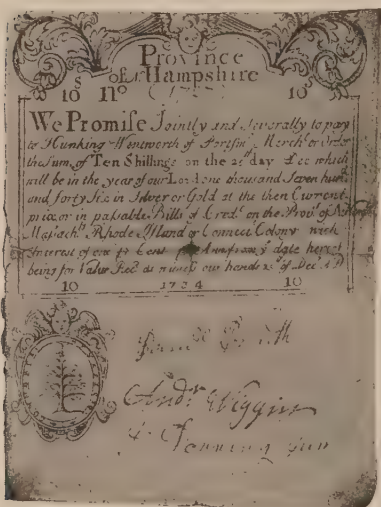 Province
of N. Hampshire
10s No 10s
We Promise Jointly and Severally to pay
to Hunking Wentworth of Portsmo Mercht or Order
the Sum of Ten Shillings on the 25th day Dec which
will be in the year of our Lord one thousand Seven hund
and forty Six in Silver or Gold at the then Current
price or in passable Bills of Credt on the Prove of
Massachts Rhode Island or Connect Colony with
Interest of one pr Cent pr Annu from ye date hereof
being for Value Recd as witness our hands of Decr
10 1734 10
Andr Wiggin